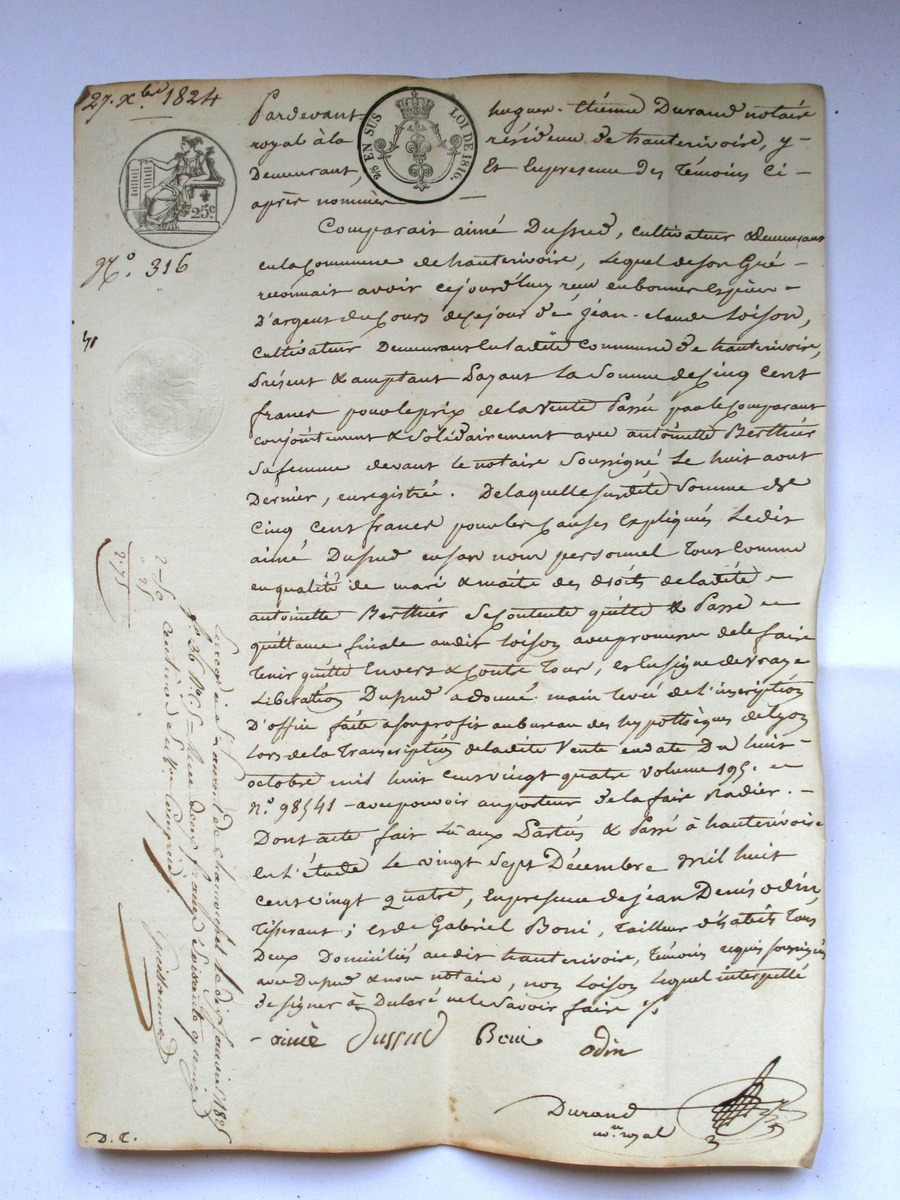 27. xbre 1824
2/5 EN SUS
LOI DE 1816.
25c
N.o 316
Pardevant hugues-étienne Durand notaire
royal à la résidence de hauterivoire, y
Demeurant, Et En presence Des Témoins Ci-
après nommés
Comparait aimé Dussud, cultivateur Demeurant
en la Commune de hauterivoire, Lequel de son Gré
reconnait avoir cejourd'huy reçu en bonnes Espèces
D'argent du Cours de ce jour de jean-claude Loison,
Cultivateur Demeurant En la dite Commune de hauterivoire,
Présent & acceptant Payant la Somme de Cinq Cent
francs pour le prix de la Vente Passée par le Comparant
Conjointement & Solidairement avec antoinette Berthier
Sa femme devant le notaire Soussigné Le huit aout
Dernier, enregistrée. De laquelle susdite Somme de
Cinq Cent francs pour les Causes Expliqués Ledit
aimé Dussud en son nom personnel Tout Comme
en qualité de mari & maître des droits de la dite
antoinette Berthier Se Contente quitte & Passe
quittance finale audit Loison avec promesse de le faire
Tenir quitte Envers & Contre Tous, Et En signe de Vraye
Libération Dussud a donné main Levée de l'inscription
D'office faite a son profit au bureau des hypothèques de Lyon
Lors de la Transcription de la dite Vente en date Du huit
octobre mil huit Cent vingt quatre volume 195.
N.o 98541 - avec pouvoir au porteur de la faire Radier. -
Dont acte fait Lu aux Parties & Passé à hauterivoire
En L'étude Le vingt Sept Décembre Mil huit
Cent vingt quatre, En presence de jean Denis odin,
Tisserant; Et de Gabriel Boni, Tailleur d'habits Tous
Deux Domiciliés audit hauterivoire, Témoins requis soussignés
avec Dussud & nous notaire, non Loison Lequel interpellé
de signer à Déclaré ne le Savoir faire
aimé Dussud Boni odin
Durand
no.re royal
2-50
25
2.75
Enregistré à St Laurent de Chamousset le dix Janvier 1825
f.o 36 R.o C. 5 - Reçu deux francs soixante quinze
Centimes
D. T.